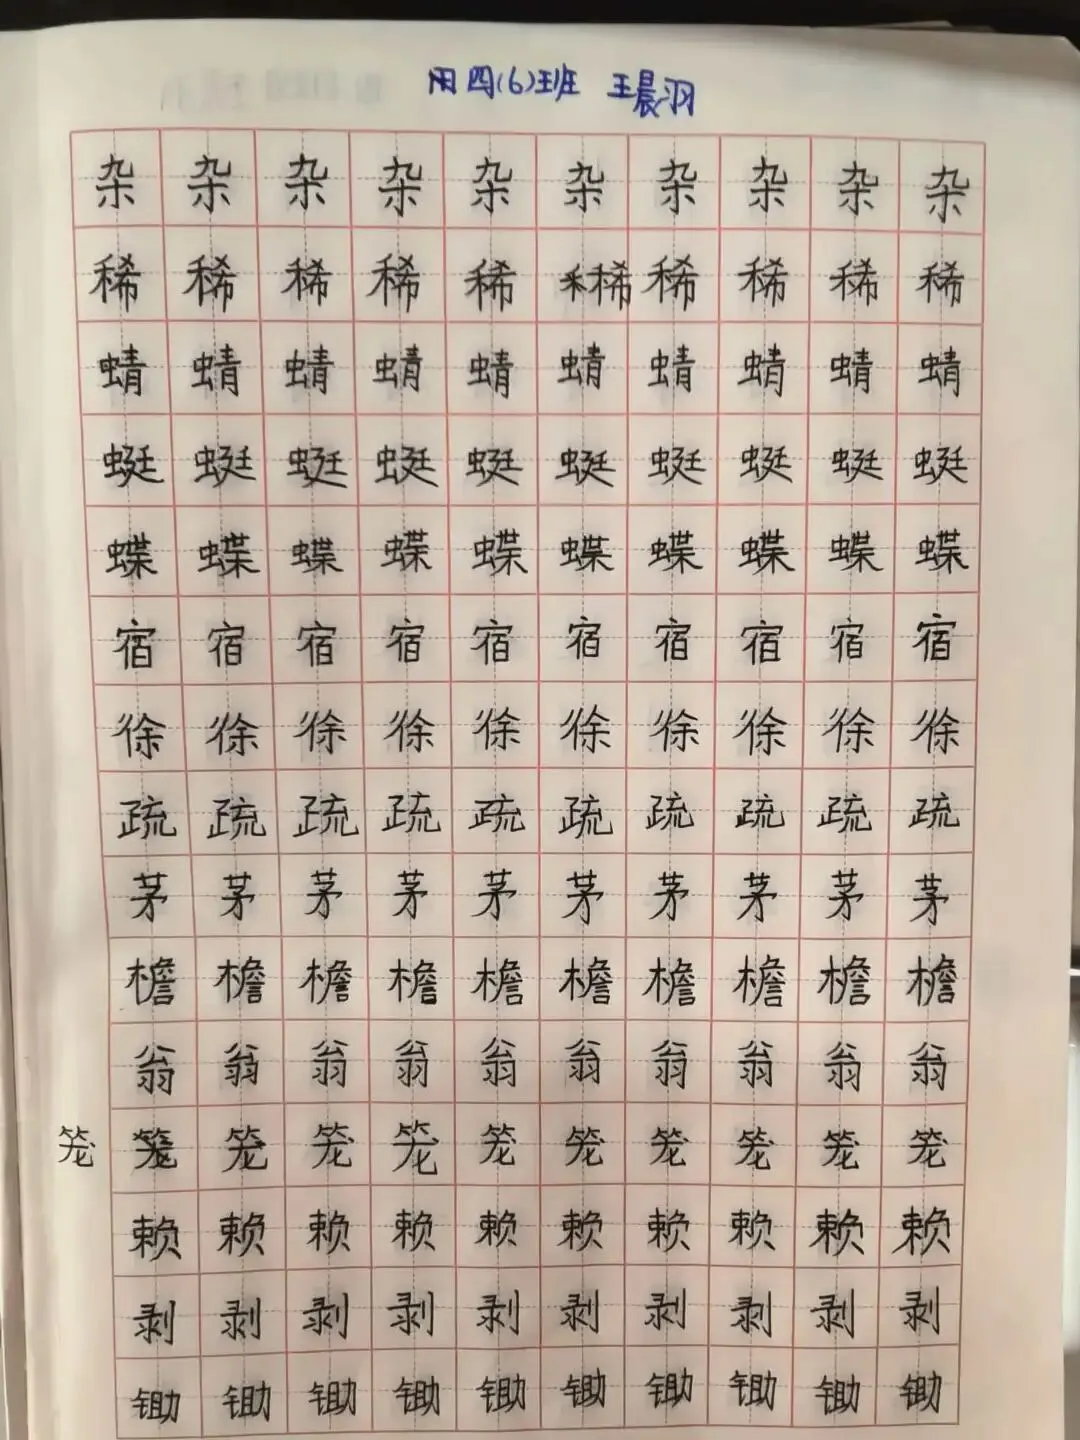 四(6)班 王晨羽
杂杂杂杂杂杂杂杂杂杂
稀稀稀稀稀稀稀稀稀稀
蜻蜻蜻蜻蜻蜻蜻蜻蜻蜻
蜓蜓蜓蜓蜓蜓蜓蜓蜓蜓
蝶蝶蝶蝶蝶蝶蝶蝶蝶蝶
宿宿宿宿宿宿宿宿宿宿
徐徐徐徐徐徐徐徐徐徐
疏疏疏疏疏疏疏疏疏疏
茅茅茅茅茅茅茅茅茅茅
檐檐檐檐檐檐檐檐檐檐
翁翁翁翁翁翁翁翁翁翁
笼 笼笼笼笼笼笼笼笼笼笼
赖赖赖赖赖赖赖赖赖赖
剥剥剥剥剥剥剥剥剥剥
锄锄锄锄锄锄锄锄锄锄